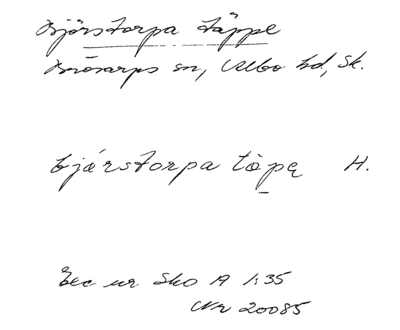 Bjärstorpa täppe
Brösarps sn, Albo hd, Sk.
bjárstorpa tàpę H.
Exc ur Sko A 1:35
Nr 20085